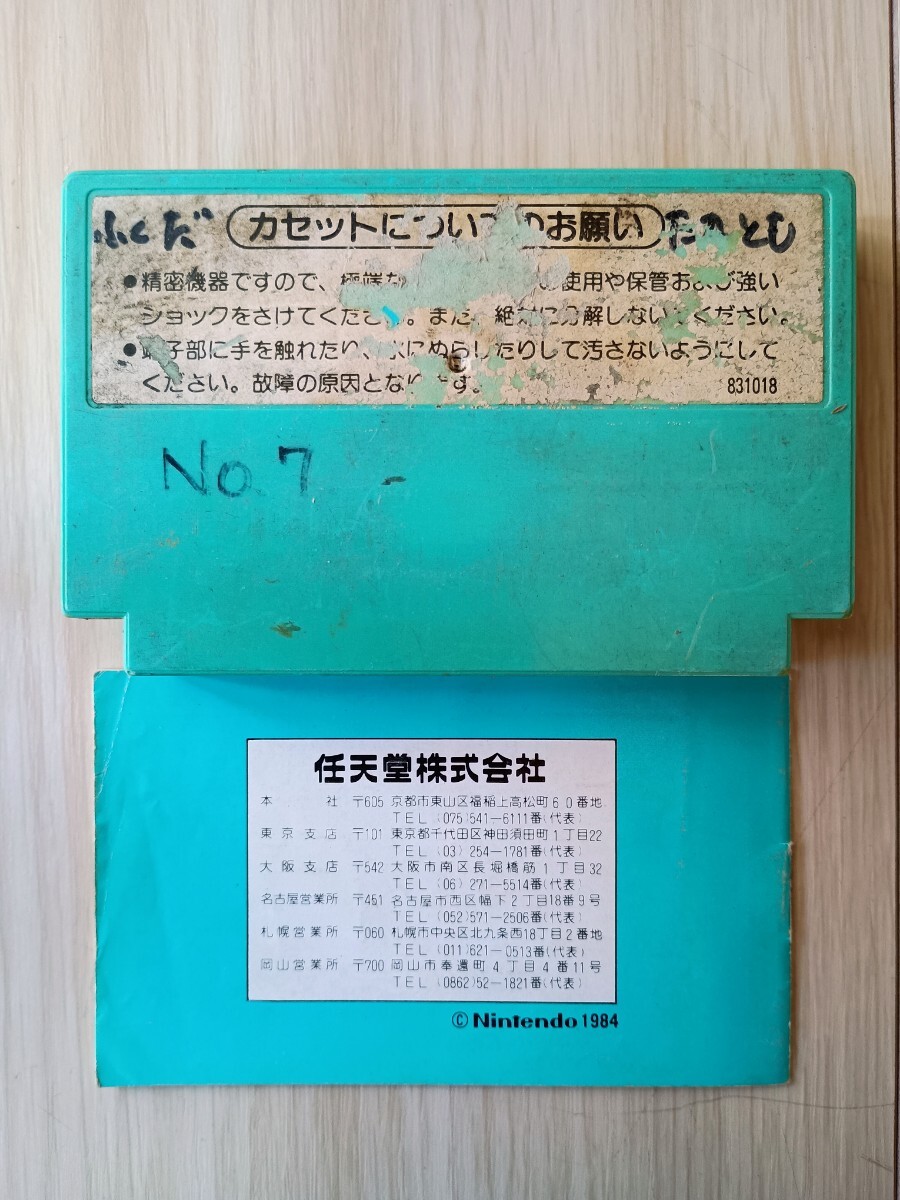 ふくだ カセットについてのお願い たかとし
●精密機器ですので、極端な の使用や保管および強い
ショックをさけてください。また、絶対に分解しないでください。
●端子部に手を触れたり、水にぬらしたりして汚さないようにして
ください。故障の原因となります。 831018
No.7
任天堂株式会社
本社 〒605 京都市東山区福稲上高松町60番地
TEL (075)541-6111番(代表)
東京支店 〒101 東京都千代田区神田須田町1丁目22
TEL (03) 254-1781番(代表)
大阪支店 〒542 大阪市南区長堀橋筋1丁目32
TEL (06) 271-5514番(代表)
名古屋営業所 〒451 名古屋市西区幅下2丁目18番9号
TEL (052)571-2506番(代表)
札幌営業所 〒060 札幌市中央区北九条西18丁目2番地
TEL (011)621-0513番(代表)
岡山営業所 〒700 岡山市奉還町4丁目4番11号
TEL (0862)52-1821番(代表)
© Nintendo 1984